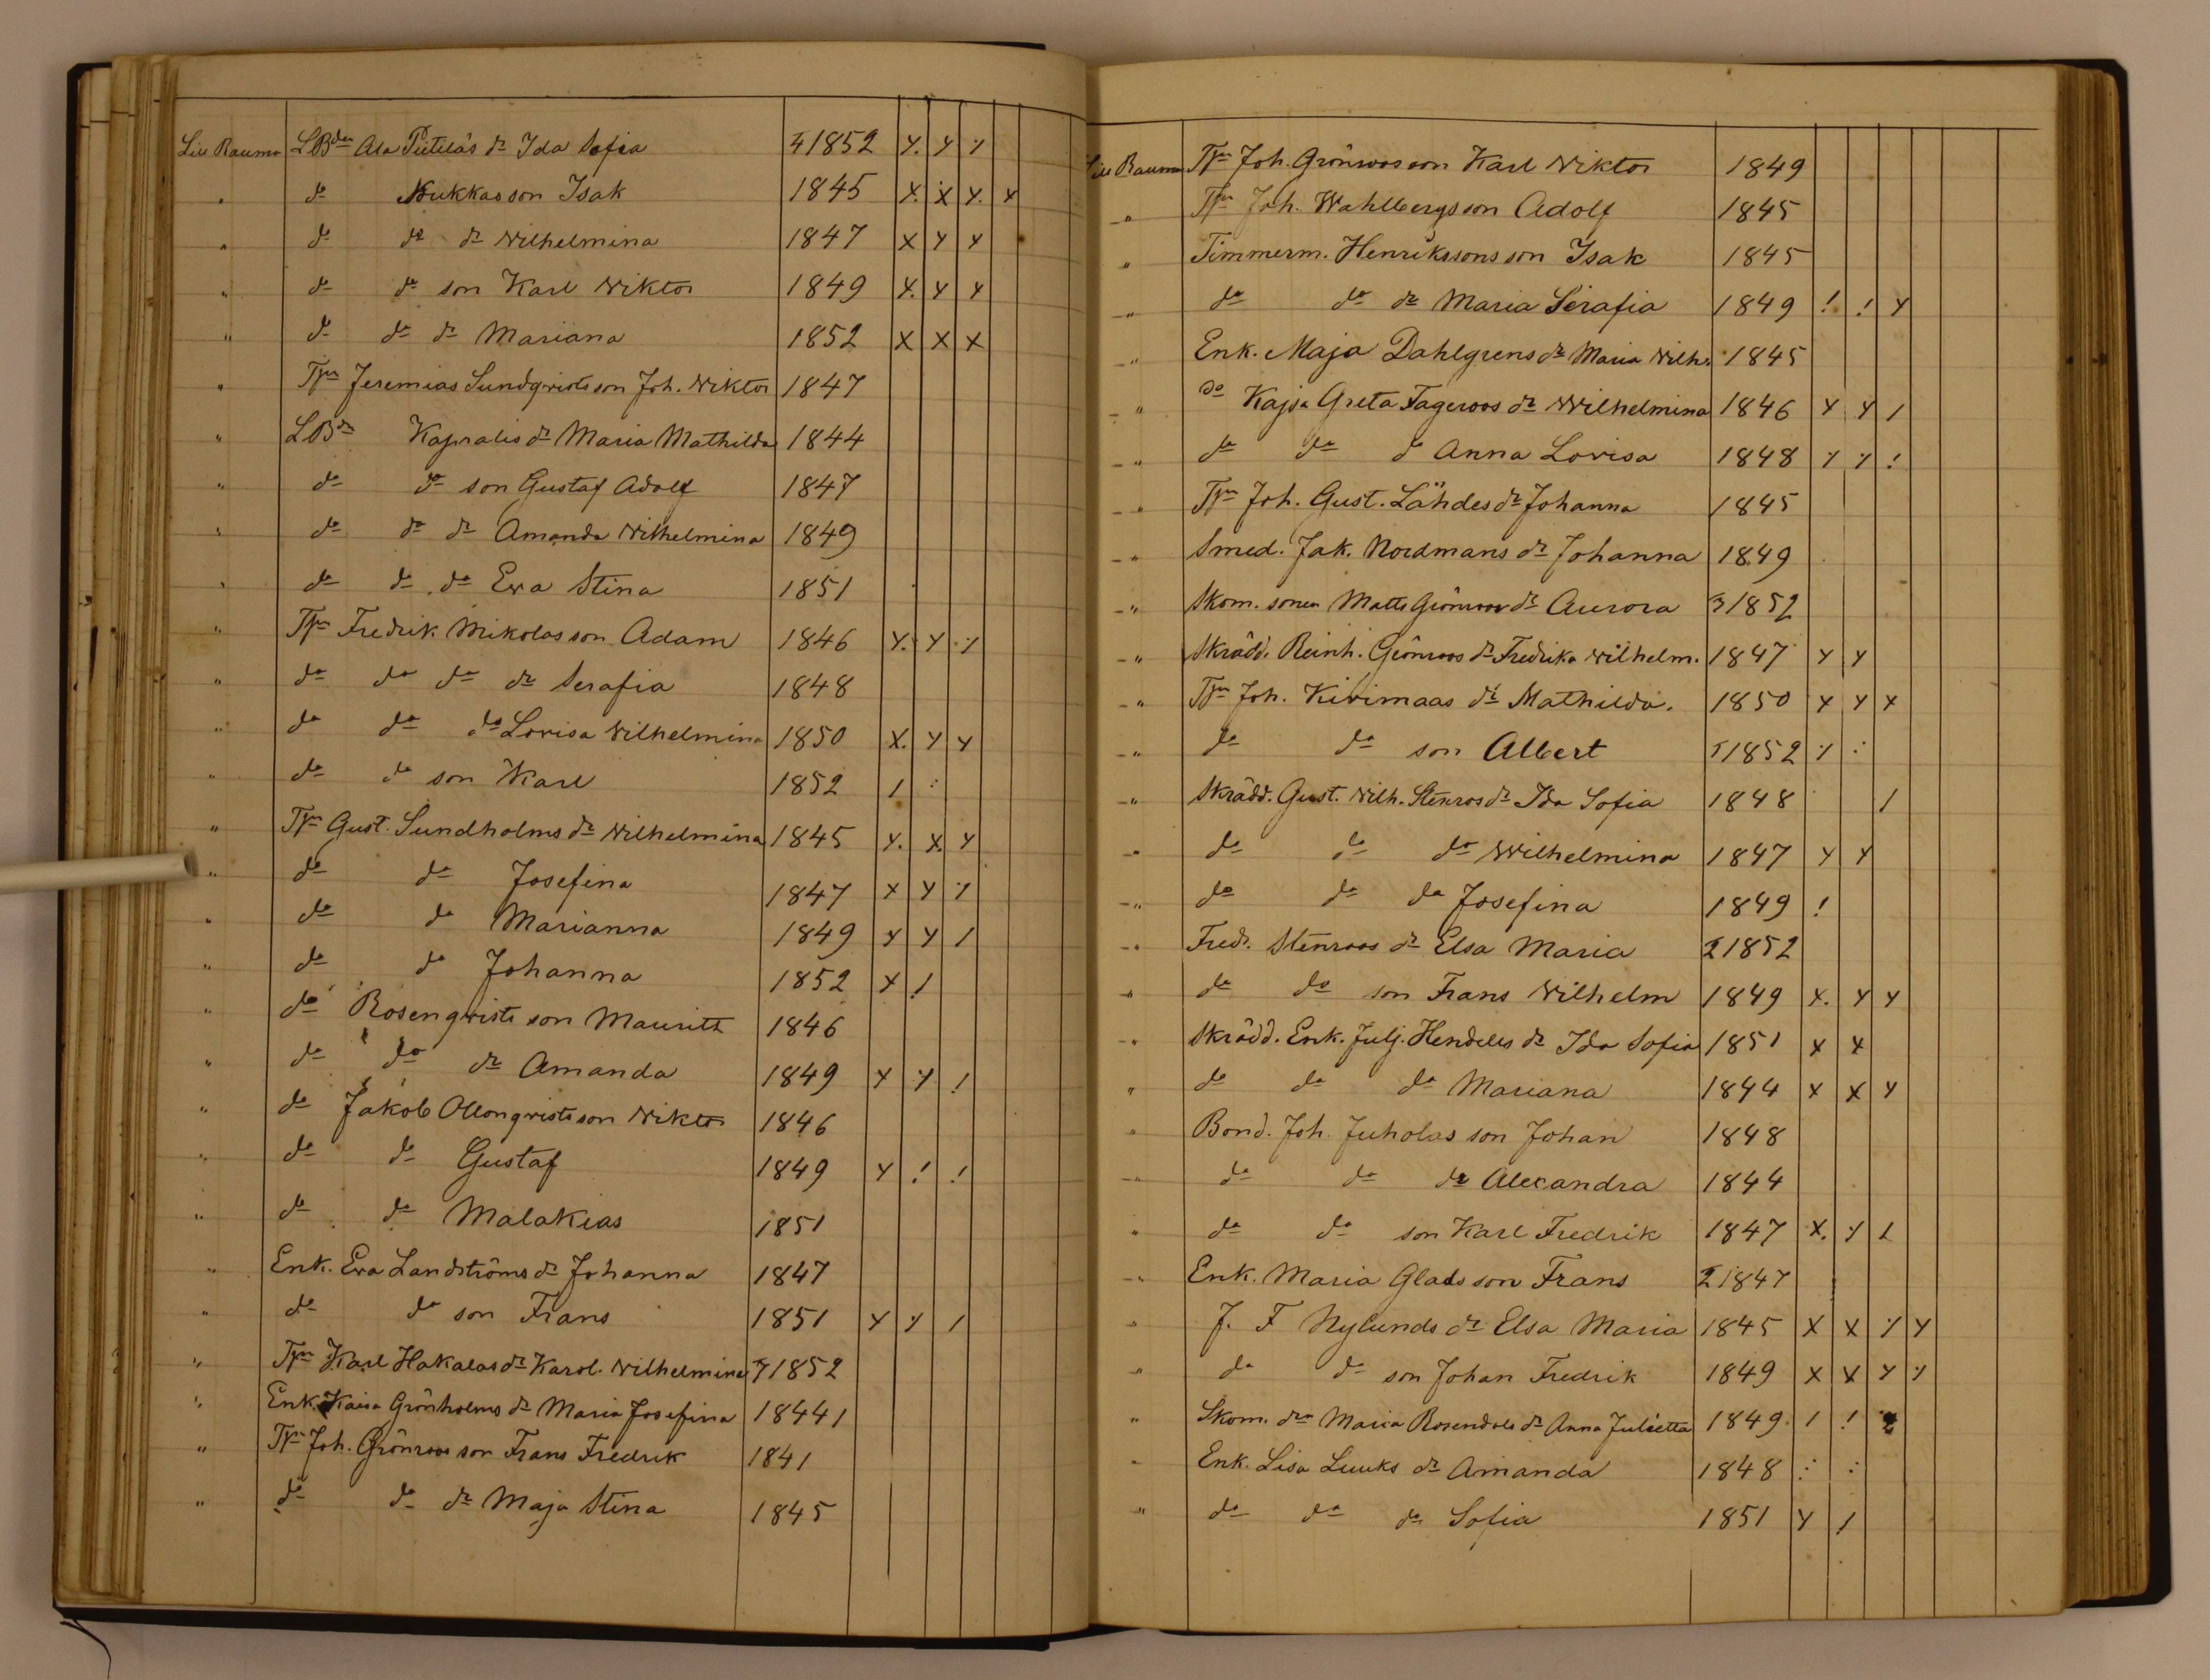 Lill Raumo LBden Ala Pietiläs dr Ida Sofia 4 1852 Y. Y ⁒
" do Nukkas son Isak 1845 X. X Y. Y
" do do dr Wilhelmina 1847 X Y Y
" do do son Karl Wiktor 1849 Y. Y Y
" do do dr Mariana 1852 X X X
" Tpr Jeremias Sundqvists son Joh. Wiktor 1847
" LBdn Kapralis dr Maria Mathilda 1844
" do do son Gustaf Adolf 1847
" do do dr Amanda Wilhelmina 1849
" do do do Eva Stina 1851
" Tpr Fredrik Mikolas son Adam 1846 Y. Y ⁒
" do do do dr Serafia 1848
" do do do Lovisa Wilhelmina 1850 X. Y Y
" do do son Karl 1852 / :
" Tpr Gust. Sundholms dr Wilhelmina 1845 Y. X. Y
" do do Josefina 1847 X Y ⁒
" do do Marianna 1849 Y Y /
" do do Johanna 1852 Y !
" do Rosenqvists son Mauritz 1846
" do do dr Amanda 1849 Y Y !
" do Jakob Ollonqvists son Wiktor 1846
" do do Gustaf 1849 Y ! !
" do do Malakias 1851
" Enk. Eva Landströms dr Johanna 1847
" do do son Frans 1851 Y Y /
" Tpr Karl Hakalas dr Karol. Wilhelmina 1852
" Enk. Kaisa Grönholms dr Maria Josefina 18441
" Tpr Joh. Grönroos son Frans Fredrik 1841
" do do dr Maja Stina 1845
Lill Raumo Tpr Joh. Grönroos son Karl Wiktor 1849
" Tpr Joh. Wahlbergs son Adolf 1845
" Timmerm. Henrikssons son Isak 1845
" do do dr Maria Serafia 1849 ! ! Y
" Enk. Maja Dahlgrens dr Maria Wilh. 1845
" do Kajsa Greta Fageroos dr Wilhelmina 1846 Y Y /
" do do do Anna Lovisa 1848 ⁒ ⁒ !
" Tpr Joh. Gust. Lähdes dr Johanna 1845
" Smed. Jak. Nordmans dr Johanna 1849
" Skom. sonen Matts Grönroos dr Aurora 3 1852
" Skrädd. Reinh. Grönroos dr Fredrika Wilhelm. 1847 Y Y
" Tpr Joh. Kivimaas dr Mathilda. 1850 Y Y Y
" do do son Albert 1852 ⁒ :
" Skrädd. Gust. Wilh. Stenros dr Ida Sofia 1848 /
" do do do Wilhelmina 1847 Y Y
" do do do Josefina 1849 !
" Fredr. Stenroos dr Elsa Maria 2 1852
" do do son Frans Wilhelm 1849 X. Y Y
" Skrädd. Enk. Julj. Hendells dr Ida Sofia 1851 X X
" do do do Mariana 1844 X X Y
" Bond. Joh. Juholas son Johan 1848
" do do dr Alexandra 1844
" do do son Karl Fredrik 1847 X. Y 1
" Enk. Maria Glads son Frans 2 1847
" J. F Nylunds dr Elsa Maria 1845 X X ⁒ Y
" do do son Johan Fredrik 1849 X X Y ⁒
" Skom. dra Maria Rosendals dr Anna Julietta 1849 ! !
" Enk. Lisa Luuks dr Amanda 1848 : :
" do do do Sofia 1851 Y /